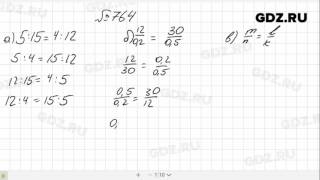 GDZ.RU
№764
а) 5:15 = 4:12
5:4 = 15:12
12:15 = 4:5
12:4 = 15:5
б) 12/0,2 = 30/0,5
12/30 = 0,2/0,5
0,5/0,2 = 30/12
0,
в) m/n = /k
1:10